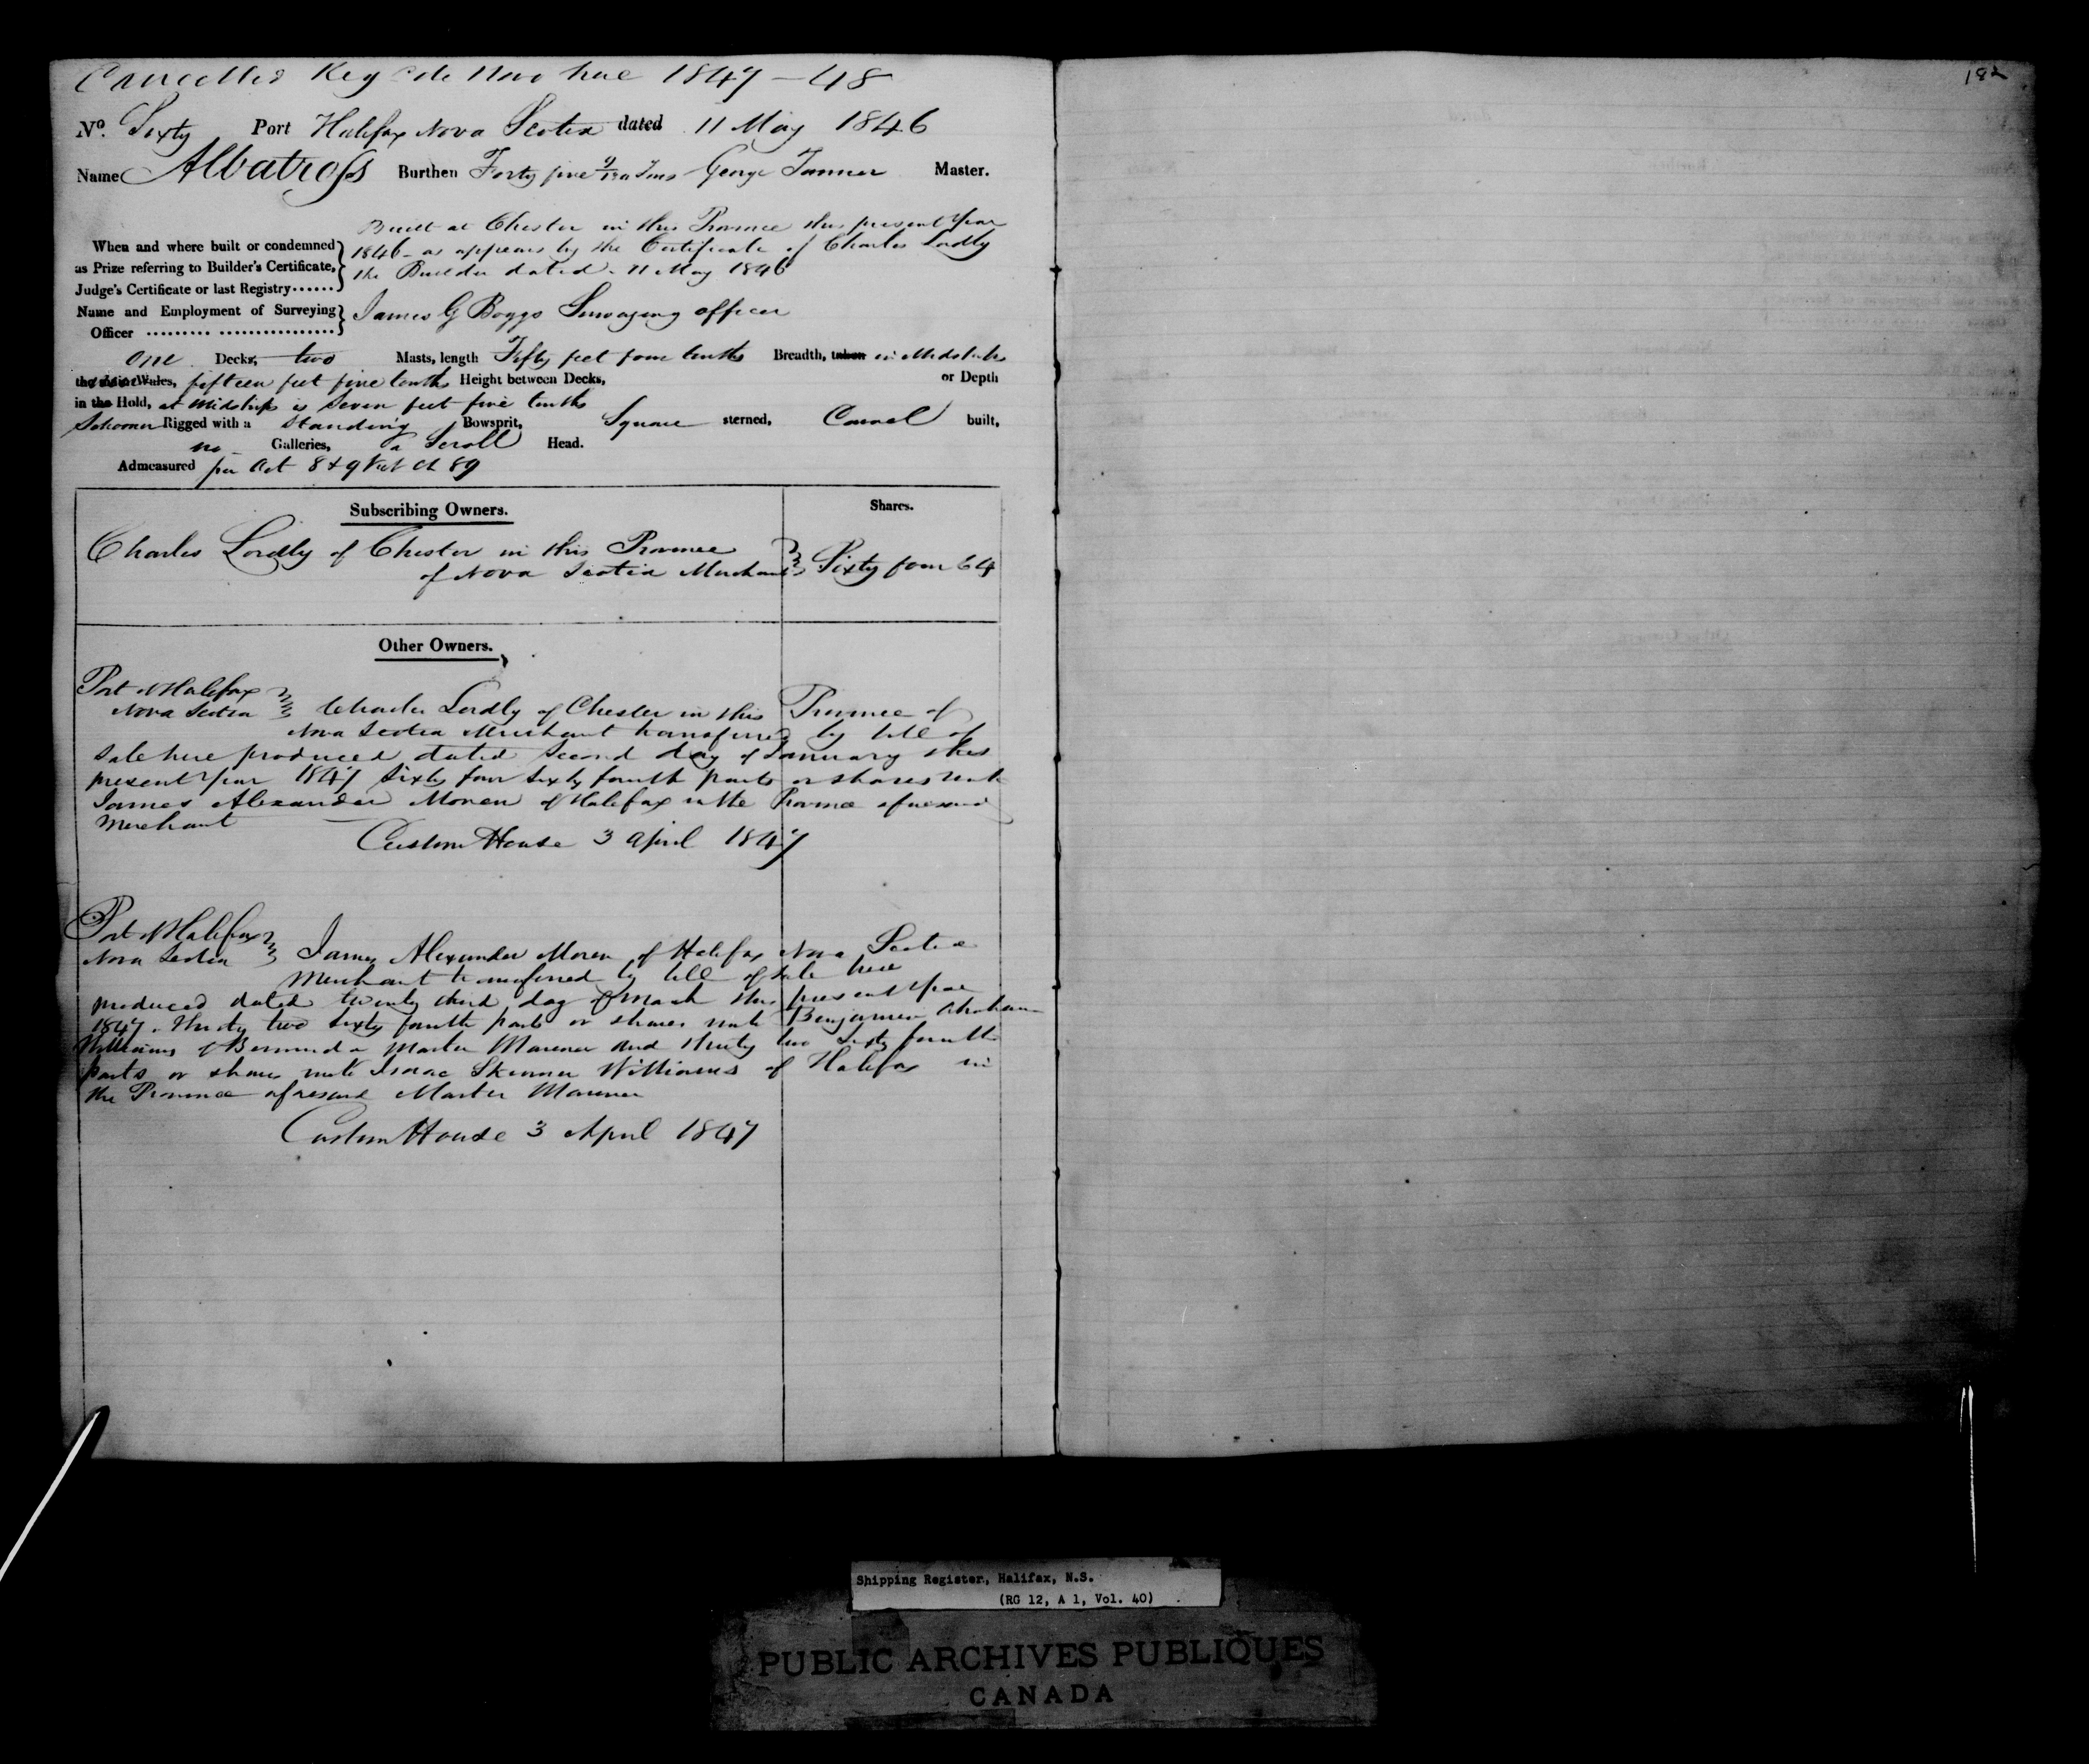 Cancelled Reg de Novo here 1847 - 48
182
No. Sixty Port Halifax Nova Scotia dated 11 May 1846
Name Albatross Burthen Forty five Tons George Tanner Master.
Built at Chester in this Province this present Year
When and where built or condemned 1846 - as appears by the Certificate of Charles Lordly
as Prize referring to Builder's Certificate, the Builder dated 11 May 1846
Judge's Certificate or last Registry......
Name and Employment of Surveying James G Boggs Surveying officer
Officer ......... ................
One Decks, two Masts, length Fifty feet four tenths Breadth, taken in Midships
the Wales, fifteen feet five tenths Height between Decks, or Depth
in the Hold, at Midships is Seven feet five tenths
Schooner Rigged with a Standing Bowsprit, Square sterned, Carvel built,
no Galleries, a Scroll Head.
Admeasured per Act 8 & 9 Vict Ch 89
Subscribing Owners. Shares.
Charles Lordly of Chester in this Province
of Nova Scotia Merchant Sixty four 64
Other Owners.
Port of Halifax
Nova Scotia Charles Lordly of Chester in this Province of
Nova Scotia Merchant transferred by bill of
Sale here produced dated Second day of January this
present Year 1847 Sixty four Sixty fourth parts or shares unto
James Alexander Moren of Halifax in the Province aforesaid
Merchant
Custom House 3 April 1847
Port of Halifax
Nova Scotia James Alexander Moren of Halifax Nova Scotia
Merchant transferred by bill of Sale here
produced dated twenty third day of March this present Year
1847. Thirty two Sixty fourth parts or shares unto Benjamin Abraham
Williams of Bermuda Master Mariner and thirty two Sixty fourth
parts or shares unto Isaac Skinner Williams of Halifax in
the Province aforesaid Master Mariner
Custom House 3 April 1847
Shipping Register, Halifax, N.S.
(RG 12, A 1, Vol. 40)
PUBLIC ARCHIVES PUBLIQUES
CANADA